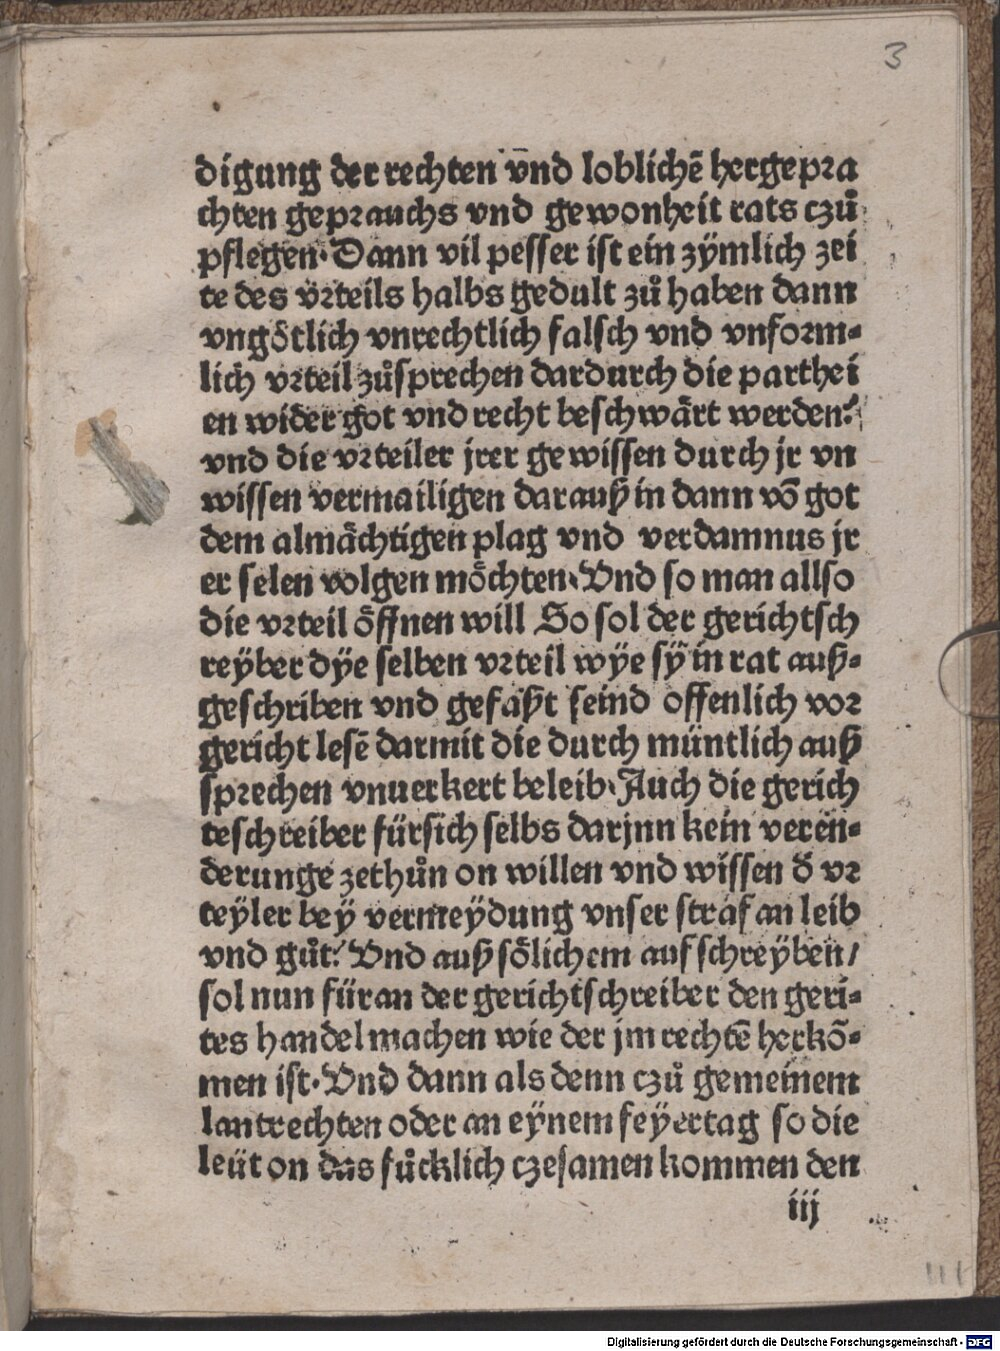 3
digung der rechten vnd loblichē hergepra
chten geprauchs vnd gewonheit rats czů
pflegen. Dann vil pesser ist ein zÿmlich zei
te des vrteils halbs gedult zů haben dann
vngötlich vnrechtlich falsch vnd vnform-
lich vrteil zůsprechen dardurch die parthei
en wider got vnd recht beschwärt werden.
vnd die vrteiler jrer gewissen durch jr vn
wissen vermailigen darauß in dann vō got
dem almächtigen plag vnd verdamnus jr
er selen volgen möchten. Vnd so man allso
die vrteil öffnen will So sol der gerichtsch
reÿber dÿe selben vrteil wÿe sÿ in rat auß-
geschriben vnd gefaßt seind offenlich vor
gericht lesē darmit die durch müntlich auß
sprechen vnuerkert beleib. Auch die gerich
tschreiber fürsich selbs darjnn kein veren-
derunge zethůn on willen vnd wissen đ vr
teÿler beÿ vermeÿdung vnser straf an leib
vnd gůt. Vnd auß sölichem aufschreÿben/
sol nun füran der gerichtschreiber den geri-
tes handel machen wie der jm rechtē herkō-
men ist. Vnd dann als denn czů gemeinem
lantrechten oder an eÿnem feÿertag so die
leüt on das fůcklich czesamen kommen den
iij
III
Digitalisierung gefördert durch die Deutsche Forschungsgemeinschaft - DFG